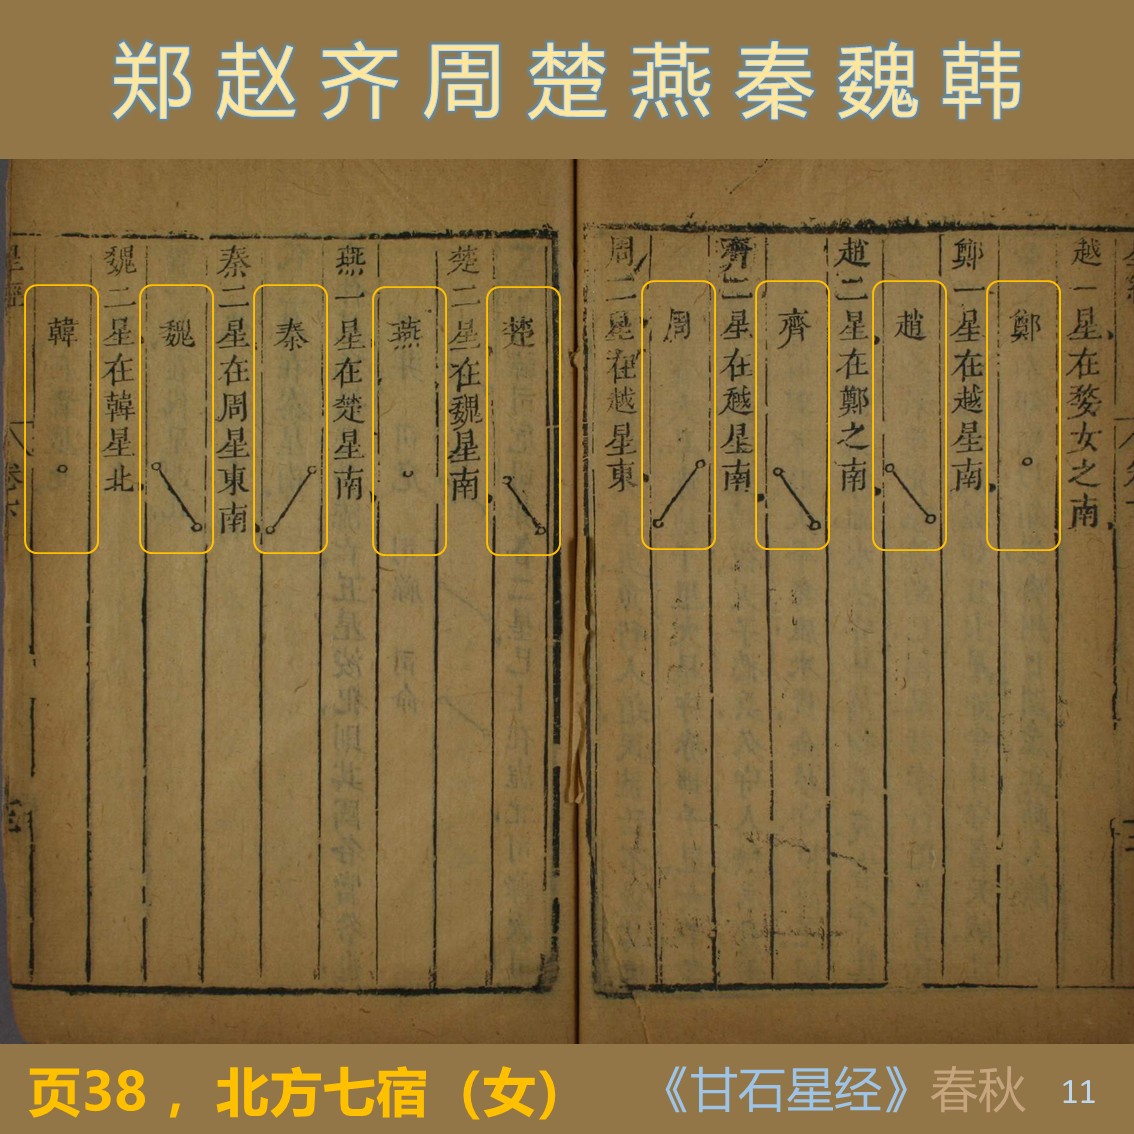 郑赵齐周楚燕秦魏韩
越一星在婺女之南
鄭
鄭一星在越星南
趙
趙二星在鄭之南
齊
齊二星在越星南
周
周二星在越星東
楚
楚二星在魏星南
燕
燕一星在楚星南
秦
秦二星在周星東南
魏
魏二星在韓星北
韓
页38，北方七宿（女）
《甘石星经》春秋
11